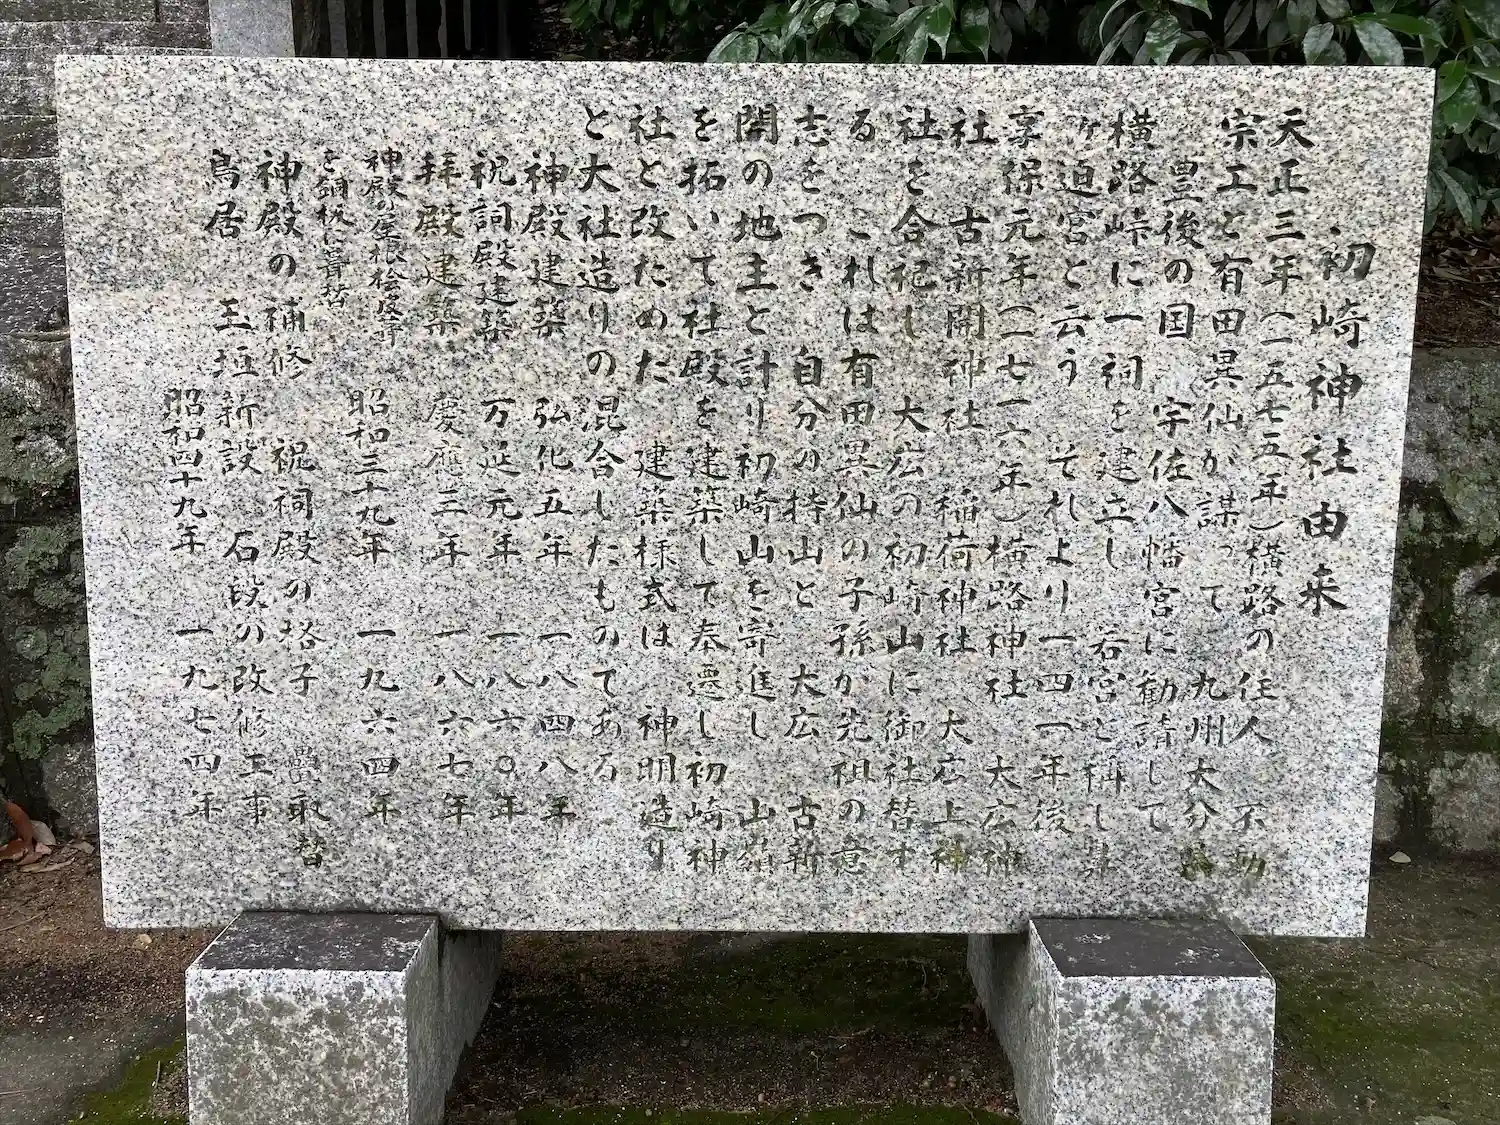 初崎神社由来
天正三年(一五七五年)横路の住人 不動
宗工と有田異仙が謀って 九州大分
豊後の国 宇佐八幡宮に勧請して
横路峠に一祠を建立し 若宮と称し
ヶ迫宮と云う それより一四一年後
享保元年(一七一六年)横路神社 大広神
社 古新開神社 稲荷神社 大広上神
社を合祀し 大広の初崎山に御社替す
る これは有田異仙の子孫が先祖の意
志をつぎ 自分の持山と 大広 古新
開の地主と計り初崎山を寄進し 山嶺
を拓いて社殿を建築して奉遷し初崎神
社と改ためた 建築様式は 神明造り
と大社造りの混合したものである
神殿建築 弘化五年 一八四八年
祝詞殿建築 万延元年 一八六〇年
拝殿建築 慶應三年 一八六七年
神殿の屋根桧皮葺
を銅板に葺替 昭和三十九年 一九六四年
神殿の補修 祝祠殿の格子 取替
鳥居 玉垣新設 石段の改修工事
昭和四十九年 一九七四年